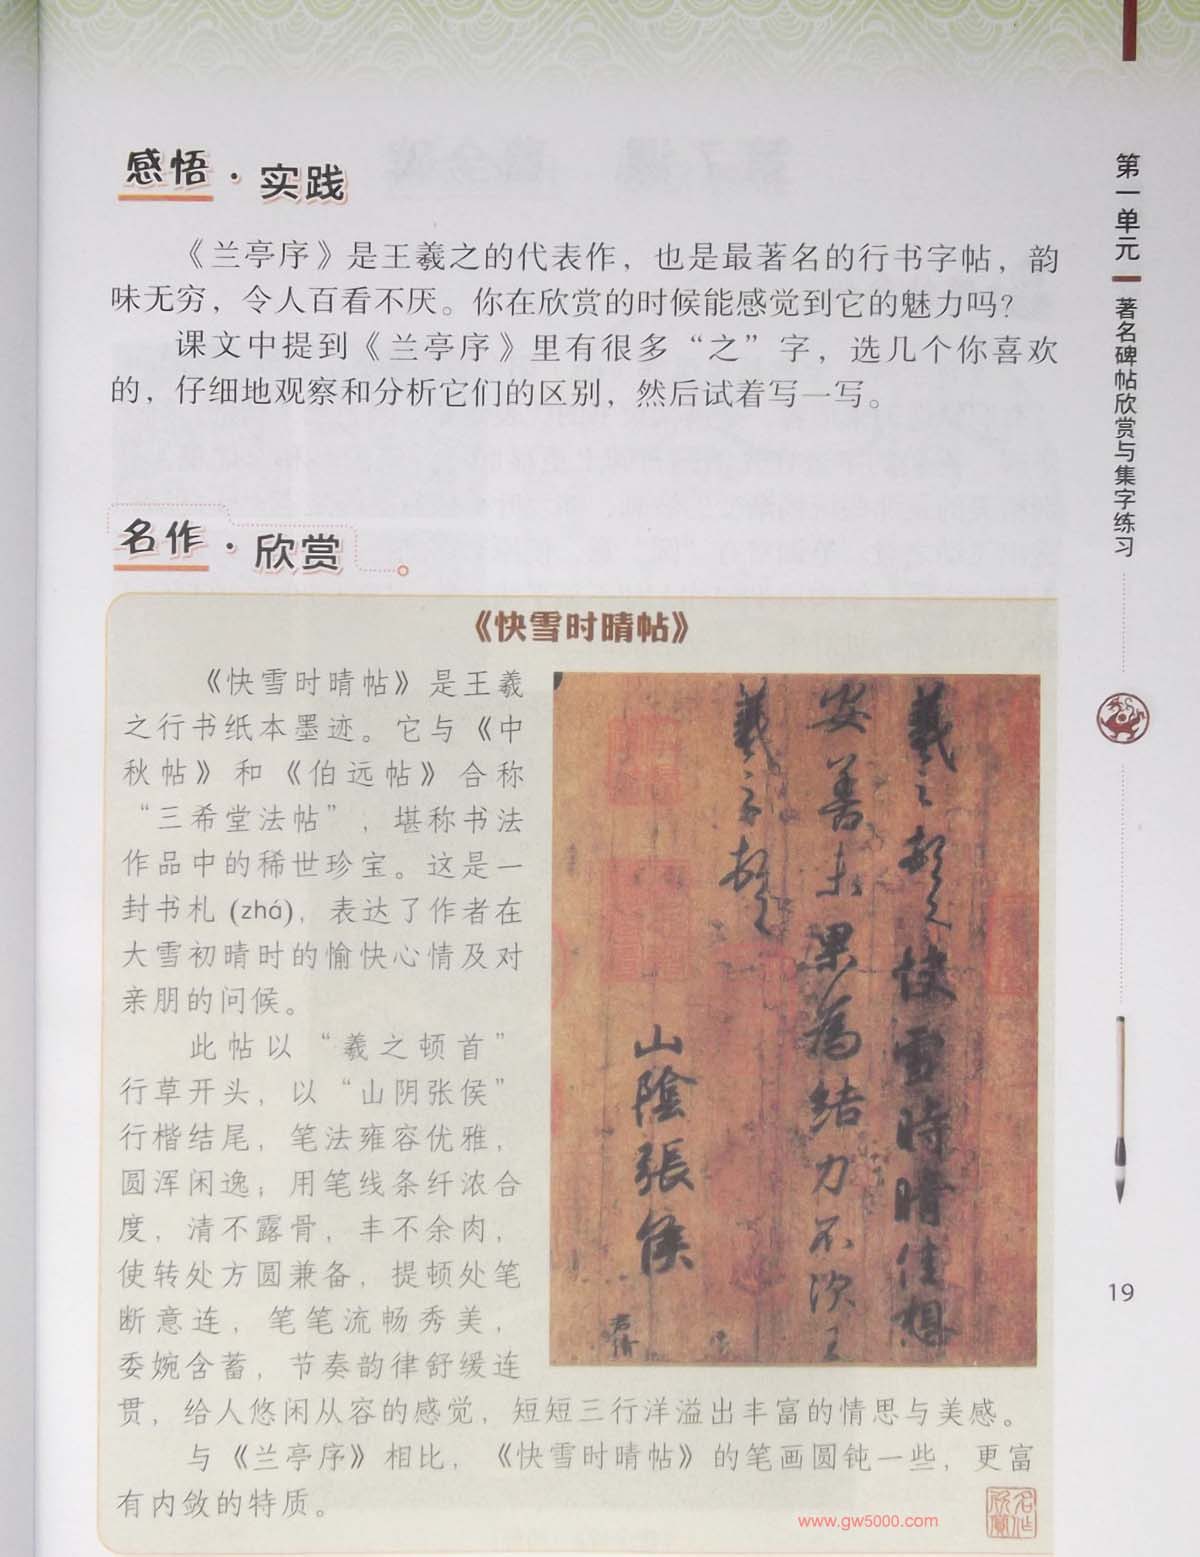 感悟·实践
《兰亭序》是王羲之的代表作，也是最著名的行书字帖，韵
味无穷，令人百看不厌。你在欣赏的时候能感觉到它的魅力吗？
课文中提到《兰亭序》里有很多“之”字，选几个你喜欢
的，仔细地观察和分析它们的区别，然后试着写一写。
名作·欣赏
《快雪时晴帖》
《快雪时晴帖》是王羲
之行书纸本墨迹。它与《中
秋帖》和《伯远帖》合称
“三希堂法帖”，堪称书法
作品中的稀世珍宝。这是一
封书札(zhá)，表达了作者在
大雪初晴时的愉快心情及对
亲朋的问候。
此帖以“羲之顿首”
行草开头，以“山阴张侯”
行楷结尾，笔法雍容优雅，
圆浑闲逸；用笔线条纤浓合
度，清不露骨，丰不余肉，
使转处方圆兼备，提顿处笔
断意连，笔笔流畅秀美，
委婉含蓄，节奏韵律舒缓连
贯，给人悠闲从容的感觉，短短三行洋溢出丰富的情思与美感。
与《兰亭序》相比，《快雪时晴帖》的笔画圆钝一些，更富
有内敛的特质。
羲之頓首快雪時晴佳想
安善未果為結力不次王
羲之頓首
山陰張侯
君倩
名作欣赏
www.gw5000.com
第一单元
著名碑帖欣赏与集字练习
19